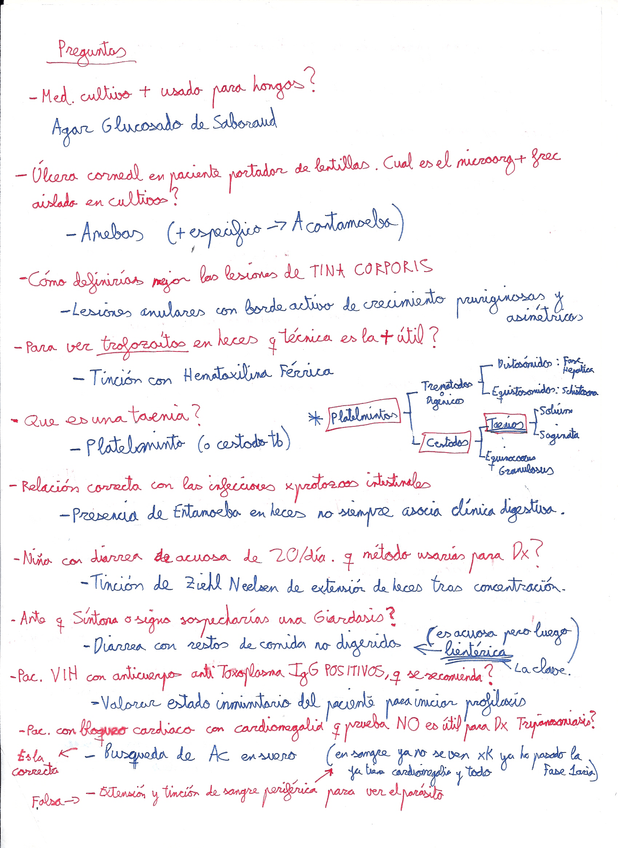 Preguntas
- Med. cultivo + usado para hongos?
Agar Glucosado de Saboraud
- Úlcera corneal en paciente portador de lentillas. Cual es el microorg + frec
aislado en cultivos?
- Amebas (+ especifico -> Acantamoeba)
- Cómo definirías mejor las lesiones de TINA CORPORIS
- Lesiones anulares con borde activo de crecimiento pruriginosas y
asimétricas
- Para ver trofozoítos en heces q técnica es la + útil?
- Tinción con Hematoxilina Férrica
- Que es una taenia?
- Platelminto (o cestodo tb)
* Platelmintos
Trematodos
Digénicos
Distosónidos: Fasc
Hepatica
Equistosonidos: Schistosoma
Cestodos
Taenias
Solium
Saginata
Equinococos
+
Granulosus
- Relación correcta con las infecciones x protozoos intestinales
- Presencia de Entamoeba en heces no siempre asocia clínica digestiva.
- Niña con diarrea de acuosa de 20/día. q método usarías para Dx?
- Tinción de Ziehl Neelsen de extensión de heces tras concentración.
- Ante q Síntoma o signo sospecharías una Giardasis?
- Diarrea con restos de comida no digeridos <- (es acuosa pero luego
lientérica)
La clave.
- Pac. VIH con anticuerpos anti Toxoplasma IgG POSITIVOS, q se recomienda?
- Valorar estado inmunitario del paciente para iniciar profilaxis
- Pac. con bloqueo cardiaco con cardiomegalia q prueba NO es útil para Dx Tripanosomiasis?
Es la
correcta
<- - Busqueda de Ac en suero (en sangre ya no se ven xK ya ha pasado la
ya tiene cardiomegalia y todo Fase 1aria)
Falsa -> - Extensión y tinción de sangre periférica para ver el parásito